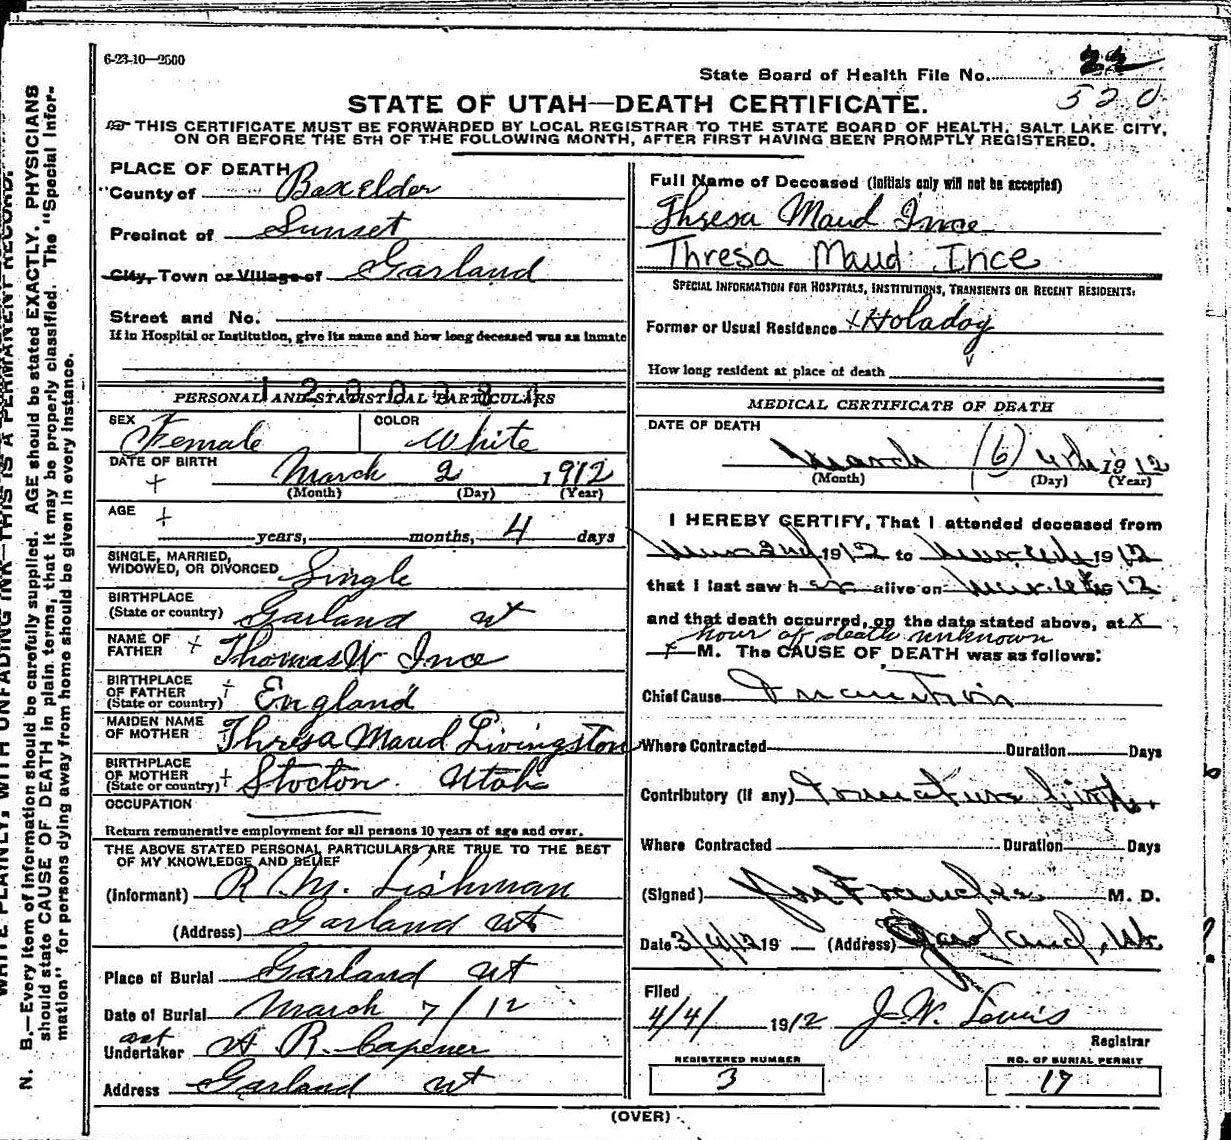 6-23-10—2500
State Board of Health File No. 22
520
STATE OF UTAH—DEATH CERTIFICATE.
THIS CERTIFICATE MUST BE FORWARDED BY LOCAL REGISTRAR TO THE STATE BOARD OF HEALTH, SALT LAKE CITY,
ON OR BEFORE THE 5TH OF THE FOLLOWING MONTH, AFTER FIRST HAVING BEEN PROMPTLY REGISTERED.
PLACE OF DEATH
County of Boxelder
Precinct of Sunset
City, Town or Village of Garland
Street and No.
If in Hospital or Institution, give its name and how long deceased was an inmate
PERSONAL AND STATISTICAL PARTICULARS
SEX Female COLOR White
DATE OF BIRTH March 2 1912
(Month) (Day) (Year)
AGE years, months, 4 days
SINGLE, MARRIED,
WIDOWED, OR DIVORCED Single
BIRTHPLACE
(State or country) Garland ut
NAME OF
FATHER Thomas W Ince
BIRTHPLACE
OF FATHER
(State or country) England
MAIDEN NAME
OF MOTHER Thresa Maud Livingston
BIRTHPLACE
OF MOTHER
(State or country) Stocton. Utah
OCCUPATION
Return remunerative employment for all persons 10 years of age and over.
THE ABOVE STATED PERSONAL PARTICULARS ARE TRUE TO THE BEST
OF MY KNOWLEDGE AND BELIEF
(Informant) R. M. Lishman
(Address) Garland ut
Place of Burial Garland ut
Date of Burial March 7/12
Undertaker A R. Capener
Address Garland ut
Full Name of Deceased (Initials only will not be accepted)
Thresa Maud Ince
Thresa Maud Ince
SPECIAL INFORMATION FOR HOSPITALS, INSTITUTIONS, TRANSIENTS OR RECENT RESIDENTS:
Former or Usual Residence Holaday
How long resident at place of death
MEDICAL CERTIFICATE OF DEATH
DATE OF DEATH
March (6) 4th 1912
(Month) (Day) (Year)
I HEREBY CERTIFY, That I attended deceased from
1912 to 1912
that I last saw her alive on 12
and that death occurred, on the date stated above, at X
hour of death unknown
M. The CAUSE OF DEATH was as follows:
Chief Cause Inanition
Where Contracted Duration Days
Contributory (if any) birth.
Where Contracted Duration Days
(Signed) M. D.
Date 3/4/12 19 (Address) Garland, Ut
Filed
4/4/ 1912 J. W. Lewis
Registrar
REGISTERED NUMBER
3
NO. OF BURIAL PERMIT
17
(OVER)
WRITE PLAINLY, WITH UNFADING INK—THIS IS A PERMANENT RECORD.
N. B.—Every item of information should be carefully supplied. AGE should be stated EXACTLY. PHYSICIANS
should state CAUSE OF DEATH in plain terms, that it may be properly classified. The "Special Infor-
mation" for persons dying away from home should be given in every instance.